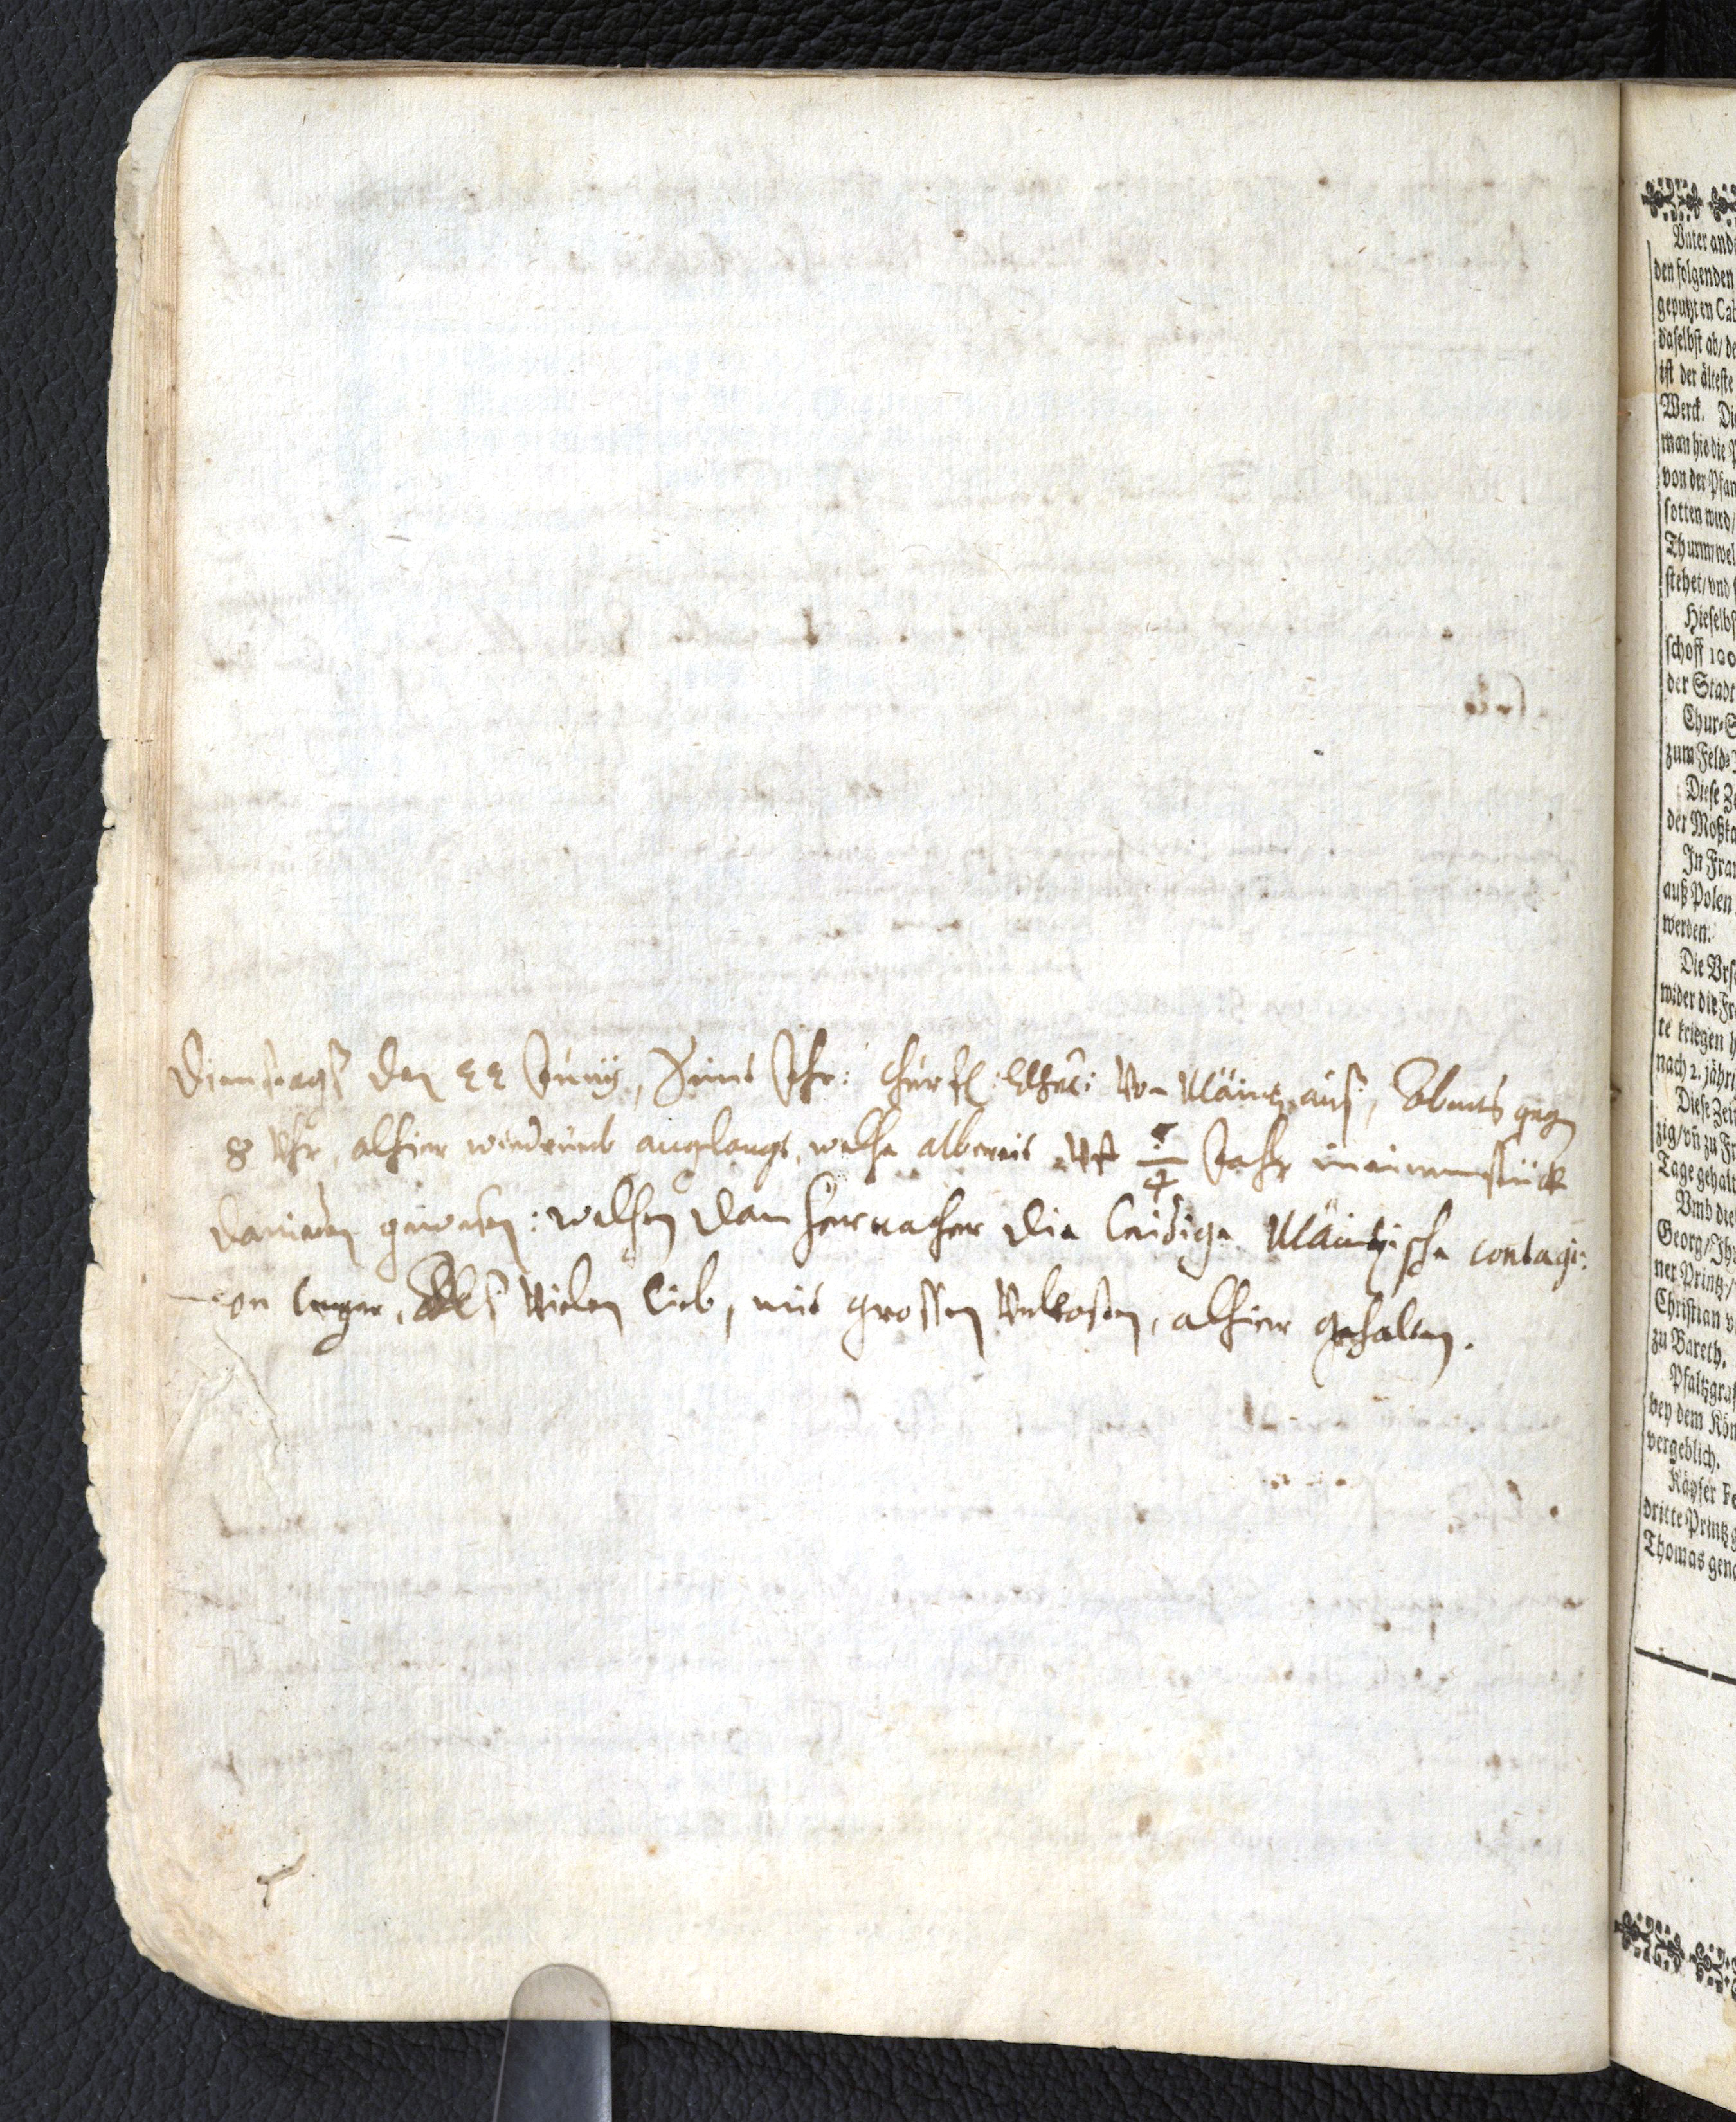 Dienstags den 22 Junij, seint Ihr: Churfl: Gnad: von Mäintz auß, Abents gegen
8 Uhr, alhier wiederumb angelangt, welche albereit uff 5/4 Jahr in einem stück
danieden gewesen: welchen dan hernacher die leidige Mäintzische contagi-
on lenger, Alß vielen lieb, mit grossen unkosten, alhier gehalten.
Vnter and
den folgenden
geputzten Ca
daselbst ab/ de
ist der älteste
Werck. Di
man hie die P
von der Pfan
sotten wird/
Thurm/wel
stehet/vnd
Hieselbs
schoff 100
der Stadt
Chur-S
zum Feld-
Diese Z
der Moßka
In Fra
auß Polen
werden.
Die Vrs
wider die Fr
te kriegen h
nach 2. jähri
Diese Zei
zig/vñ zu Fr
Tage gehalt
Vmb die
Georg/Ihr
ner Printz/
Christian v
zu Bareth.
Pfaltzgraf
bey dem Kön
vergeblich.
Käyser Fe
dritte Printz g
Thomas gena